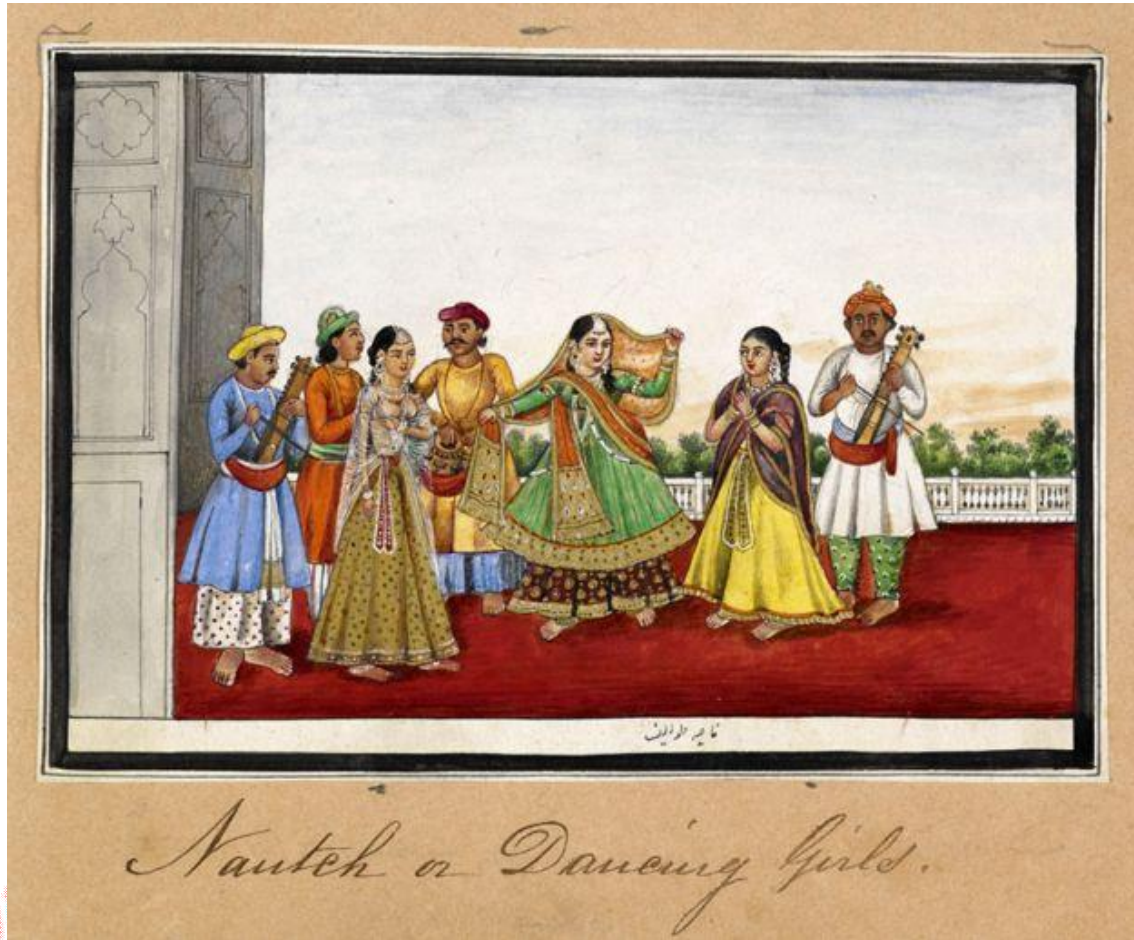 طوایف
Nautch or Dancing Girls.